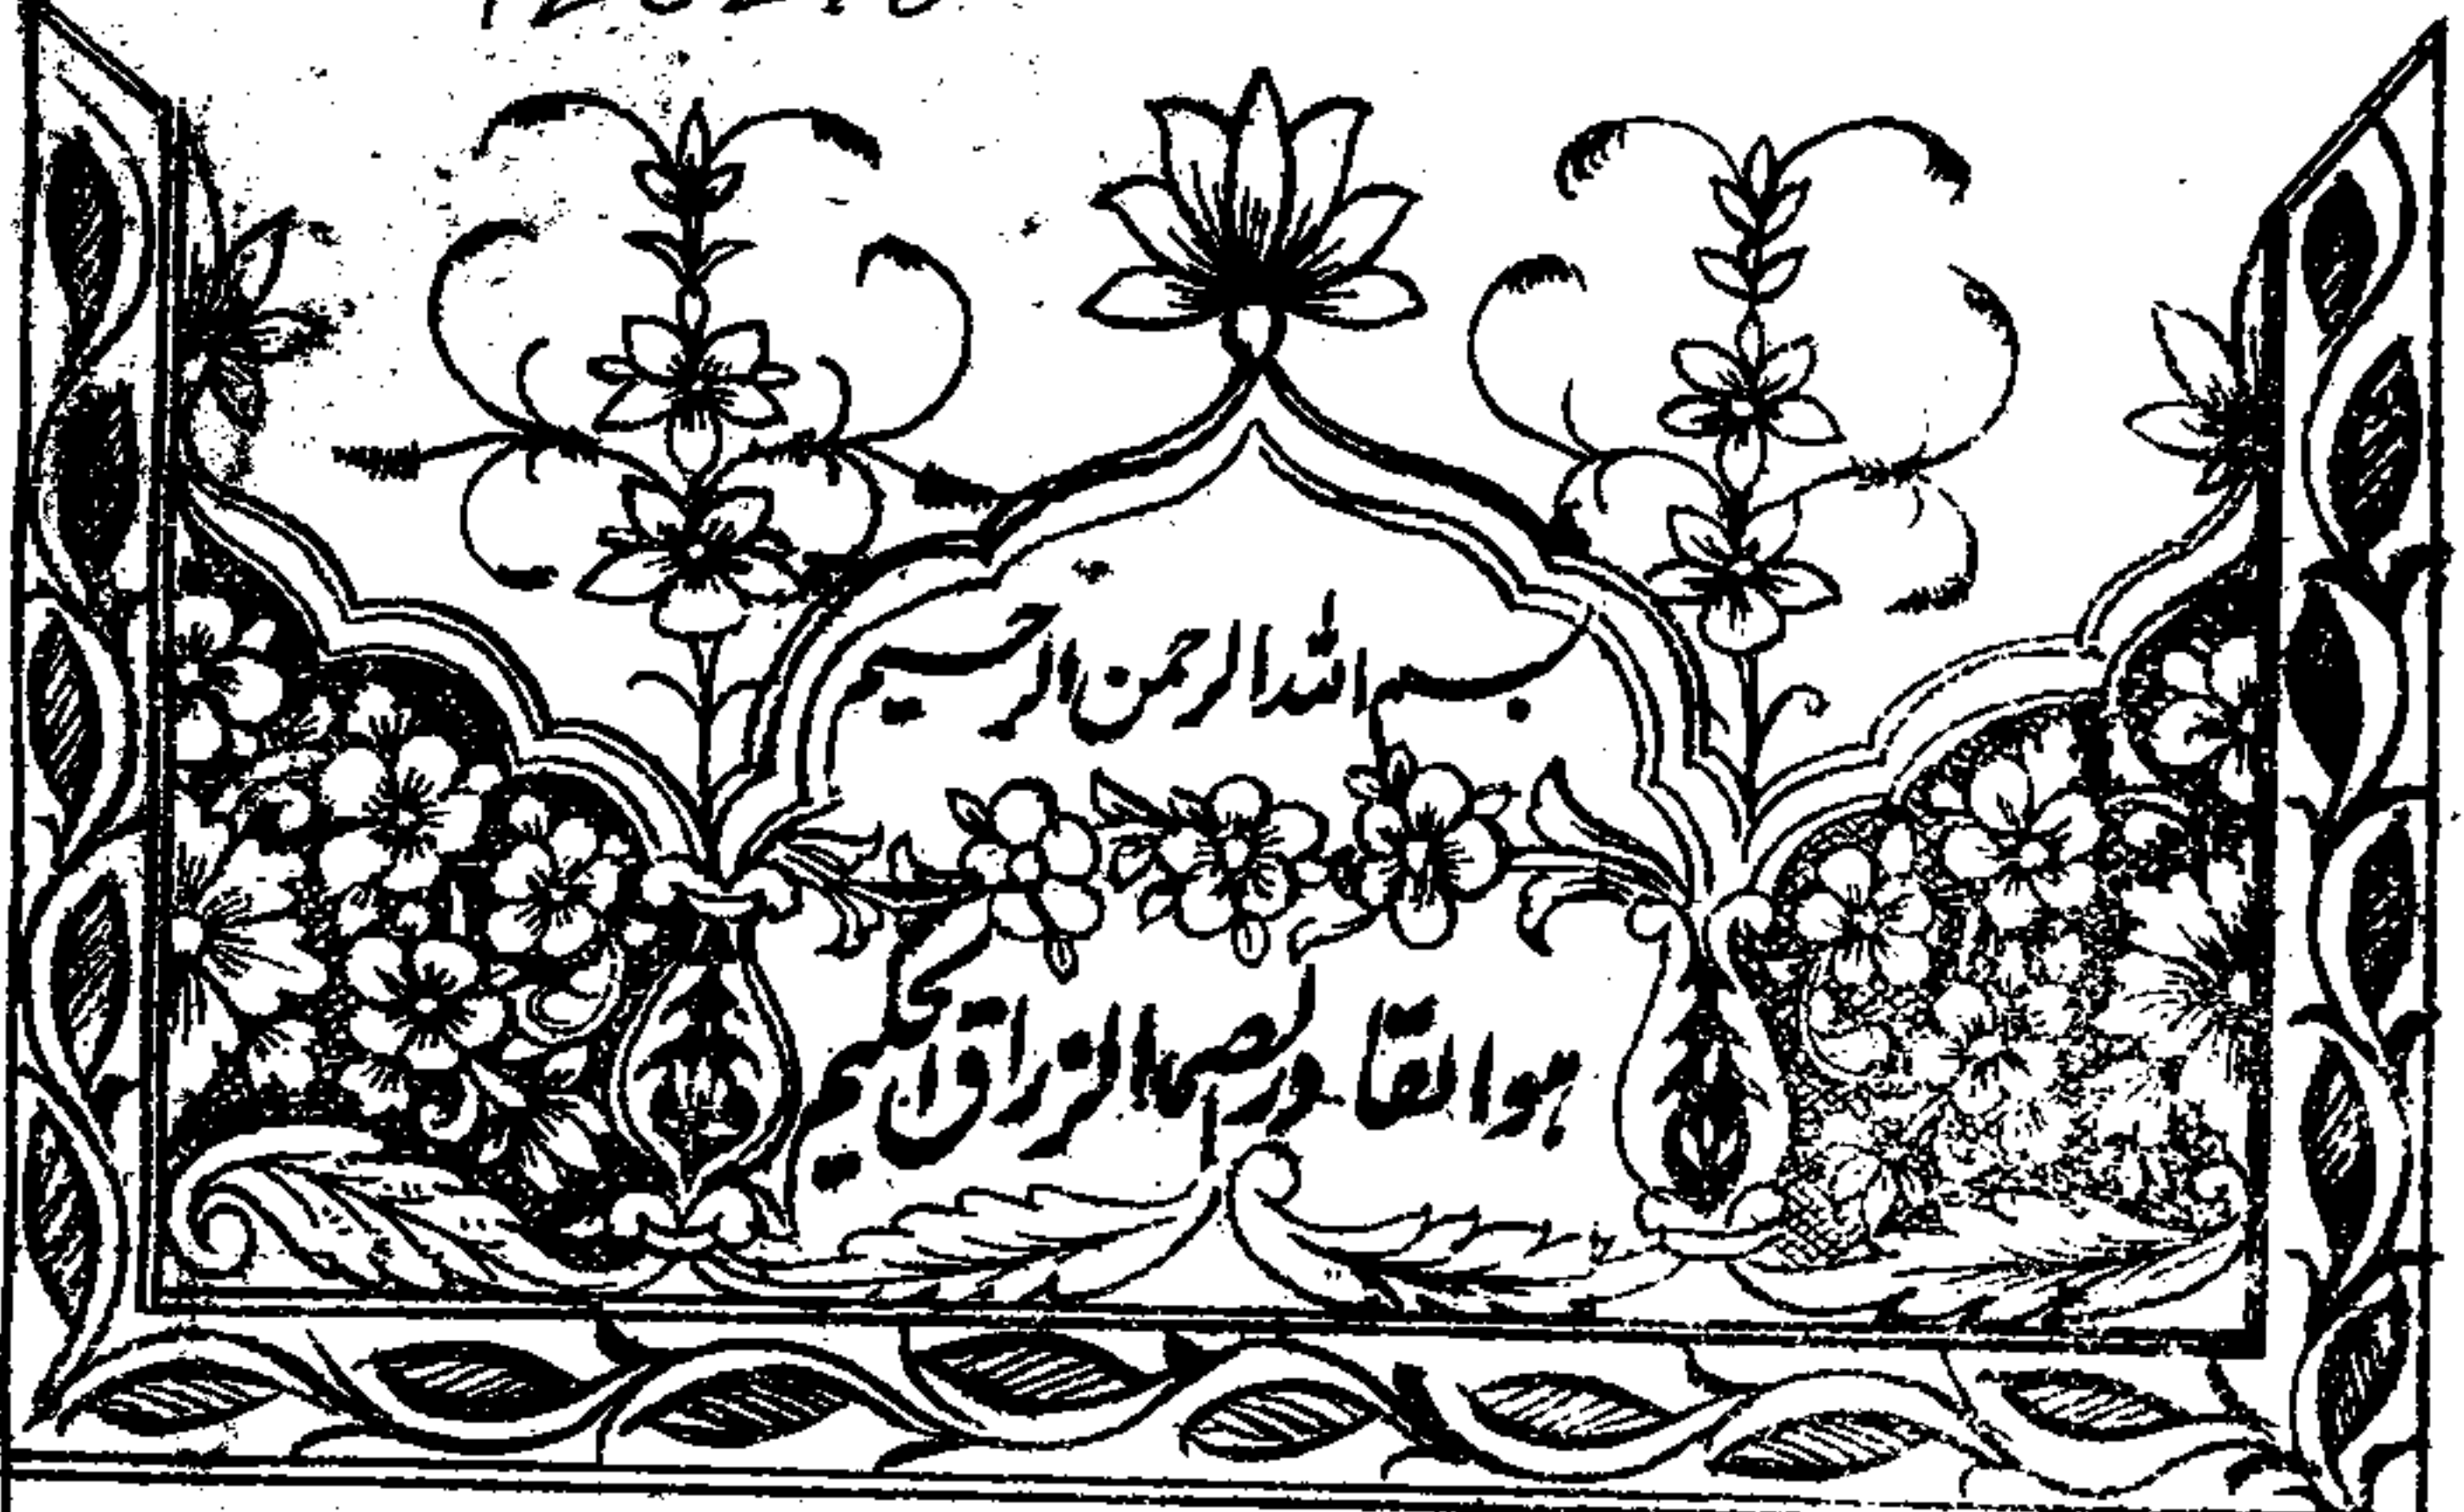 بسم الله الرحمن الرحيم
هو القادر الصمد الرزاق الحكيم